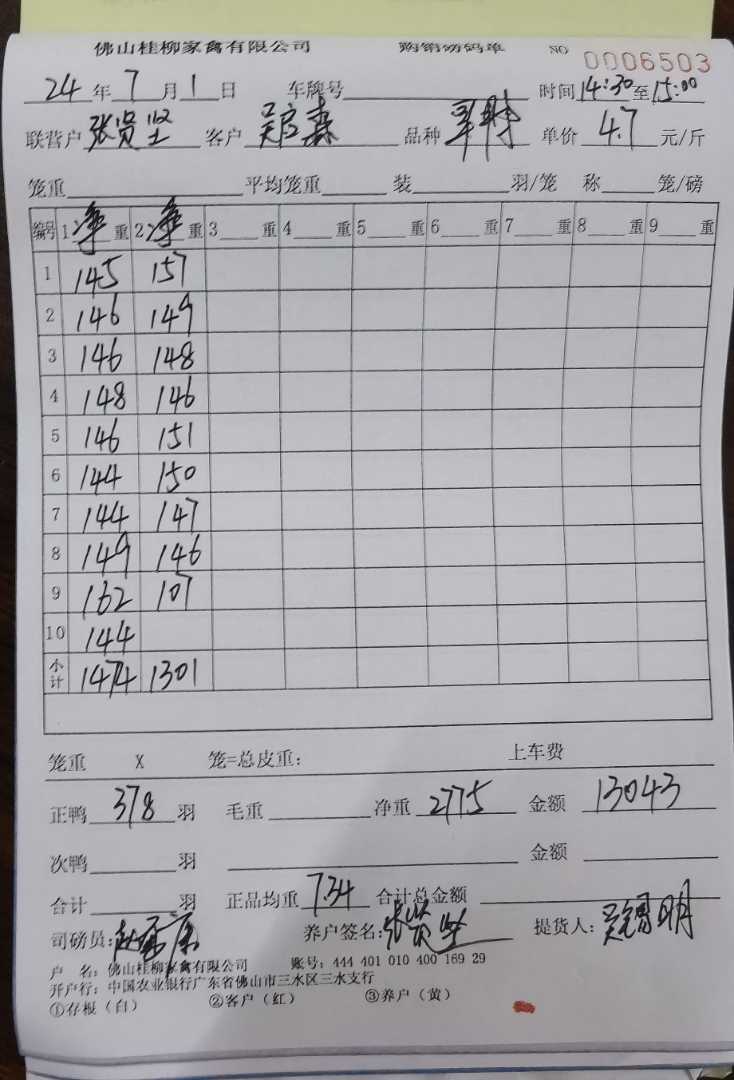 佛山桂柳家禽有限公司 购销码单 NO 0006503
24 年 7 月 1 日 车牌号 时间 14:30 至 15:00
联营户 张贤坚 客户 吴启森 品种 单价 4.7 元/斤
笼重 平均笼重 装 羽/笼 称 笼/磅
编号 1 净 重 2 净 重 3 重 4 重 5 重 6 重 7 重 8 重 9 重
1 145 157
2 146 149
3 146 148
4 148 146
5 146 151
6 144 150
7 144 147
8 149 146
9 162 107
10 144
小计 1474 1301
笼重 X 笼=总皮重: 上车费
正鸭 378 羽 毛重 净重 2775 金额 13043
次鸭 羽 金额
合计 羽 正品均重 7.34 合计总金额
司磅员: 养户签名: 张贤坚 提货人: 吴锡明
户 名: 佛山桂柳家禽有限公司 账号: 444 401 010 400 169 29
开户行: 中国农业银行广东省佛山市三水区三水支行
①存根（白） ②客户（红） ③养户（黄）